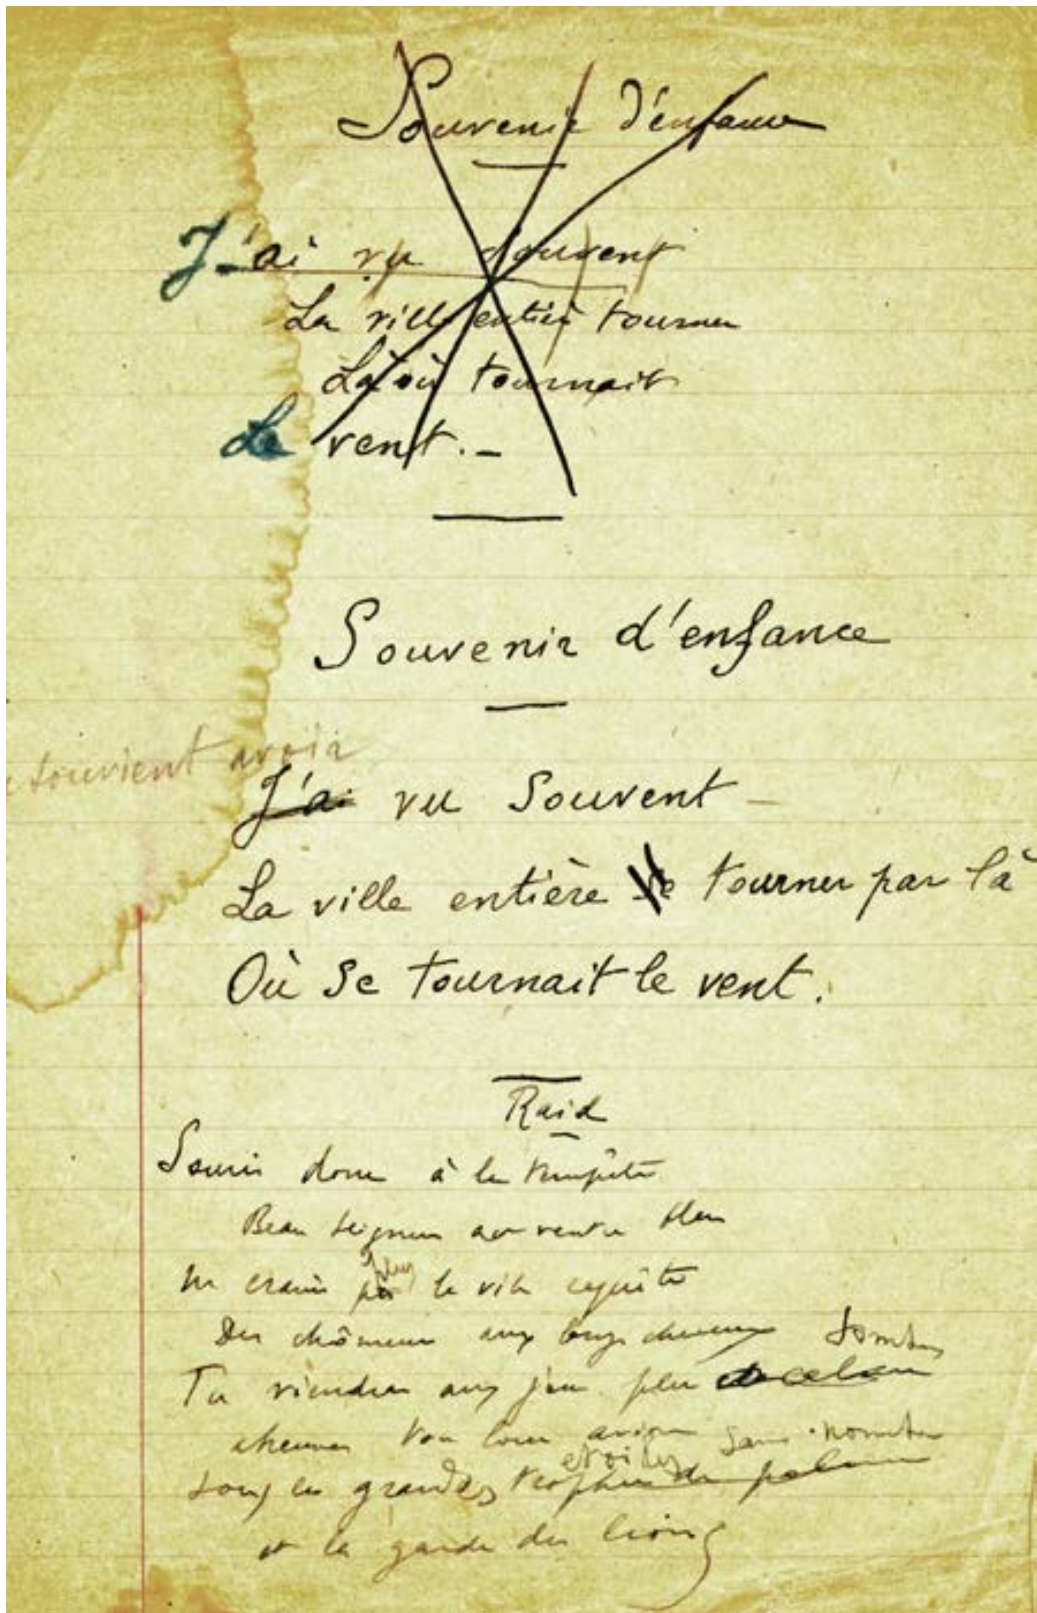 Souvenir d'enfance
J'ai vu souvent
La ville entière tourner
Là où tournait
Le vent. -
Souvenir d'enfance
souvient avoir
J'ai vu Souvent
La ville entière se tourner par là
Où se tournait le vent.
Raid
Souris donc à la tempête
Beau seigneur au ventre bleu
Ne crains pas plus la vile
Des chômeurs aux longs cheveux sombres
Tu viendras aux jeux plus
ton avion sans nombre
sous les grandes étoiles
et la garde des lions